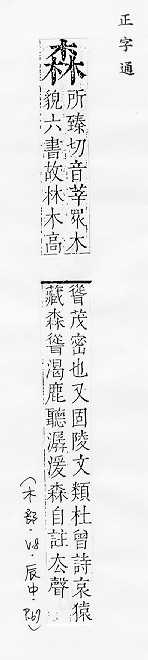 正字通
森
所臻切音莘眾木
貌六書故林木高
聳茂密也又固陵文類杜曾詩哀猿
藏森聳渴鹿聽潺湲森自註厺聲
(木部·V8·辰中·P.69)